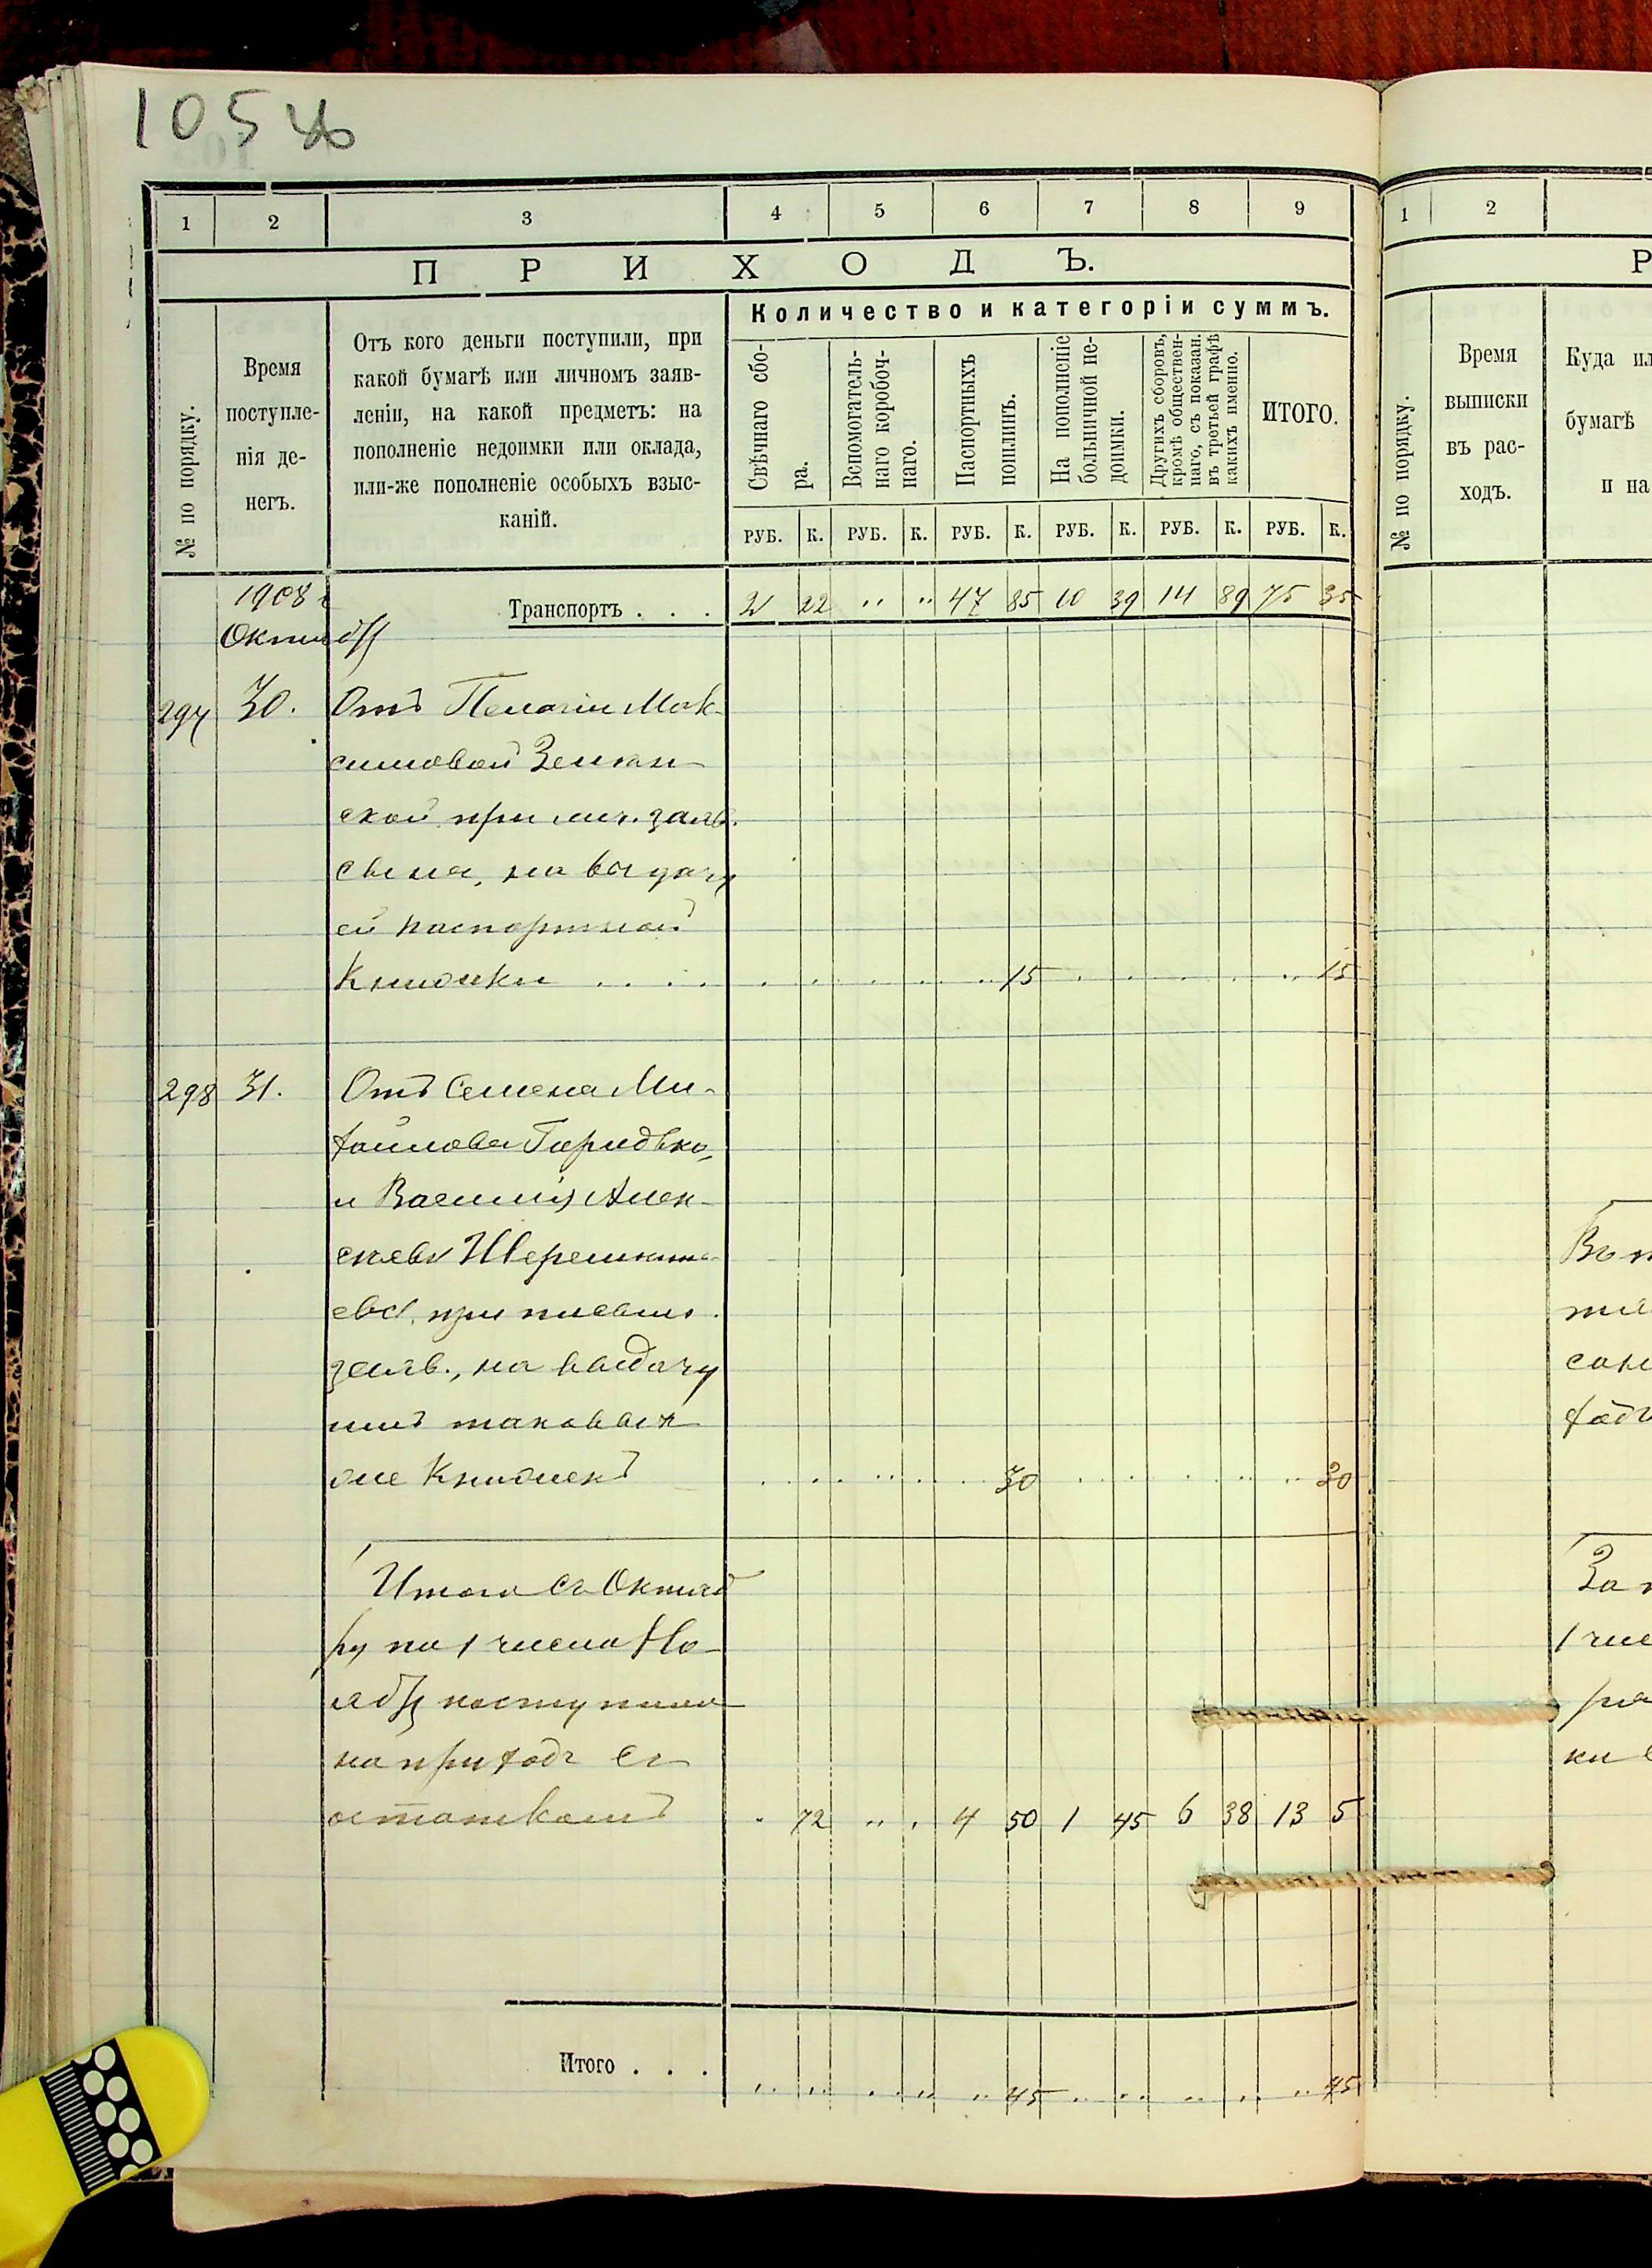 105 об
1 2 3 4 5 6 7 8 9
ПРИХОДЪ.
№ по порядку.
Время
поступле-
нія де-
негъ.
Отъ кого деньги поступили, при
какой бумагѣ или личномъ заяв-
леніи, на какой предметъ: на
пополненіе недоимки или оклада,
или-же пополненіе особыхъ взыс-
каній.
Количество и категоріи суммъ.
Свѣчнаго сбо-
ра.
Вспомогатель-
наго коробоч-
наго.
Паспортныхъ
пошлинъ.
На пополненіе
больничной не-
доимки.
Другихъ сборовъ,
кромѣ обществен-
наго, съ показан.
въ третьей графѣ
какихъ именно.
ИТОГО.
РУБ. К. РУБ. К. РУБ. К. РУБ. К. РУБ. К. РУБ. К.
1908 г
Октяб
Транспортъ . . . 2 22 " " 47 85 10 39 14 89 75 35
297 30. Отъ Пелагіи Мак-
симовой
ской при лич. заяв.
сына, на выдачу
ей паспортной
Книжки . . . . 15 15
298 31. Отъ Семена Ми-
хайлова
и Василія Алек-
сѣева
при письмен.
заяв., на выдачу
имъ таковыхъ
же Книжекъ 30 30
Итого съ Октяб
ря по 1 числа Но-
ября поступило
на приходъ съ
остаткомъ . 72 " . 4 50 1 45 6 38 13 5
Итого . . . 45 45
1 2
Р
№ по порядку.
Время
выписки
въ рас-
ходъ.
Куда ил
бумагѣ
и на
За
1 чис